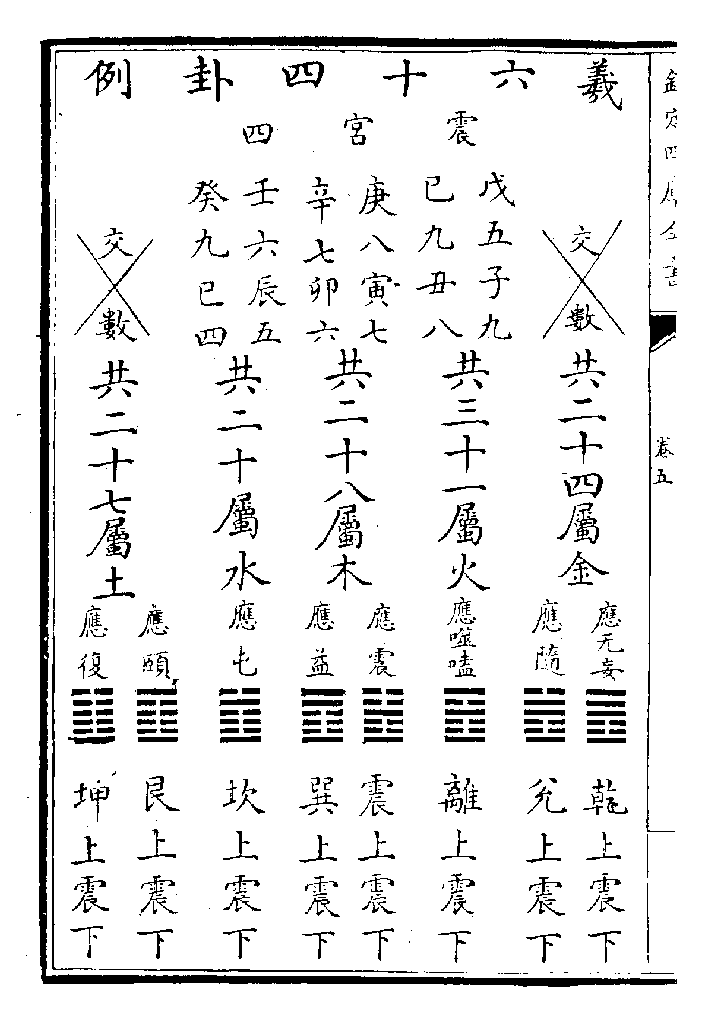 欽定四庫全書
卷五
羲六十四卦例
震宮四
交數
戊五子九
已九丑八
庚八寅七
辛七卯六
壬六辰五
癸九巳四
交數
共二十四屬金
共三十一屬火
共二十八屬木
共二十屬水
共二十七屬土
應无妄
應隨
應噬嗑
應震
應益
應屯
應頤
應復
乾上震下
兌上震下
離上震下
震上震下
巽上震下
坎上震下
艮上震下
坤上震下